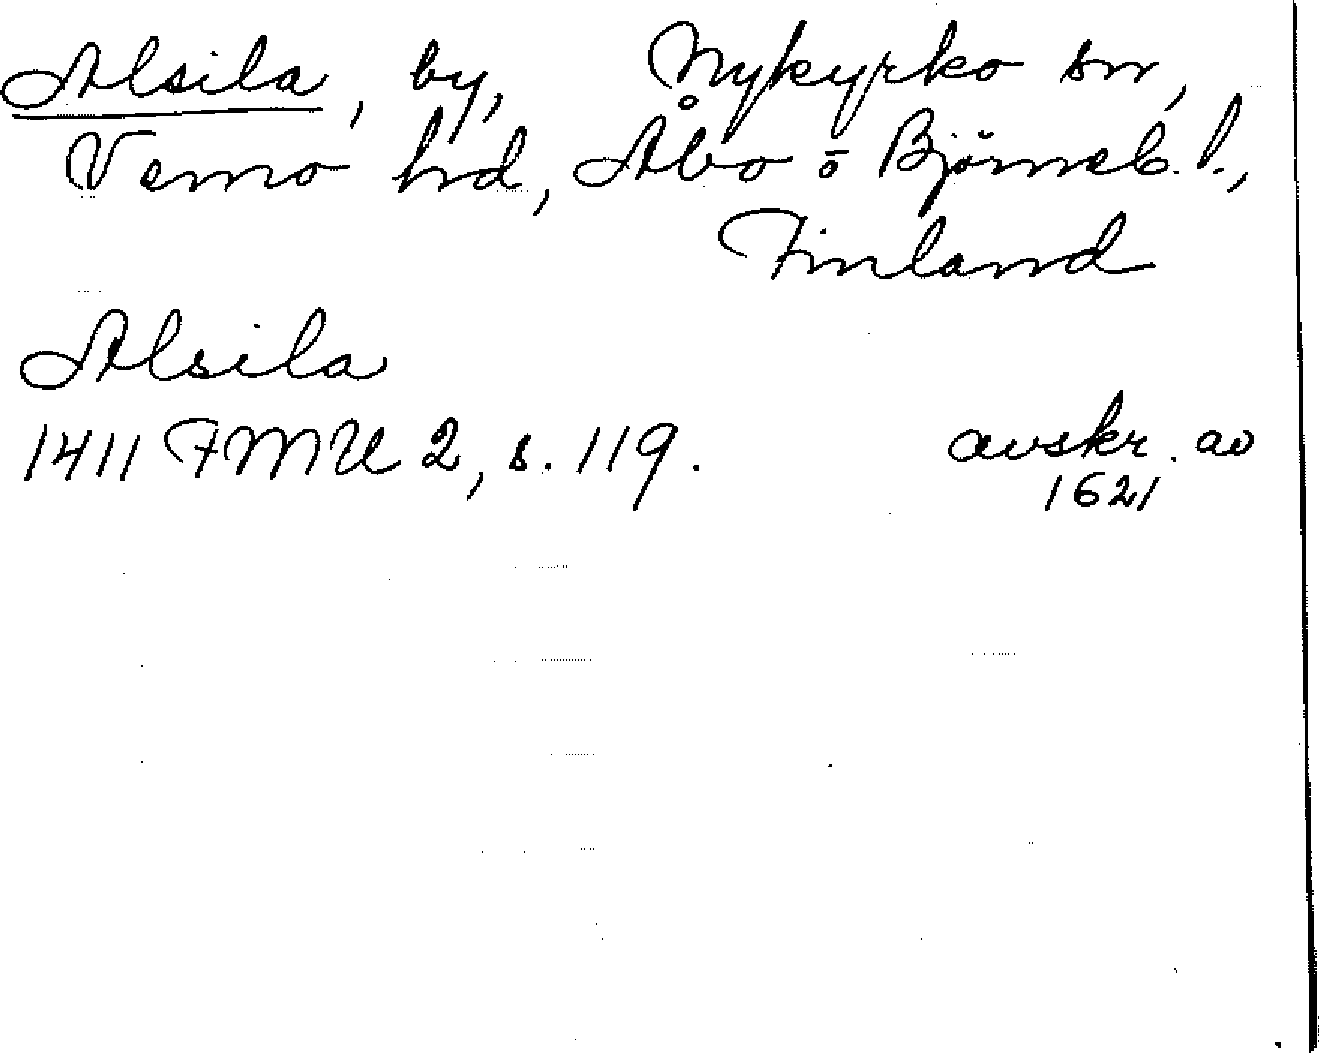 Alsila, by, Nykyrko sn,
Vemo hd, Åbo o Björneb. l.,
Finland
Alsila
1411 FMU 2, s. 119. avskr. av
1621